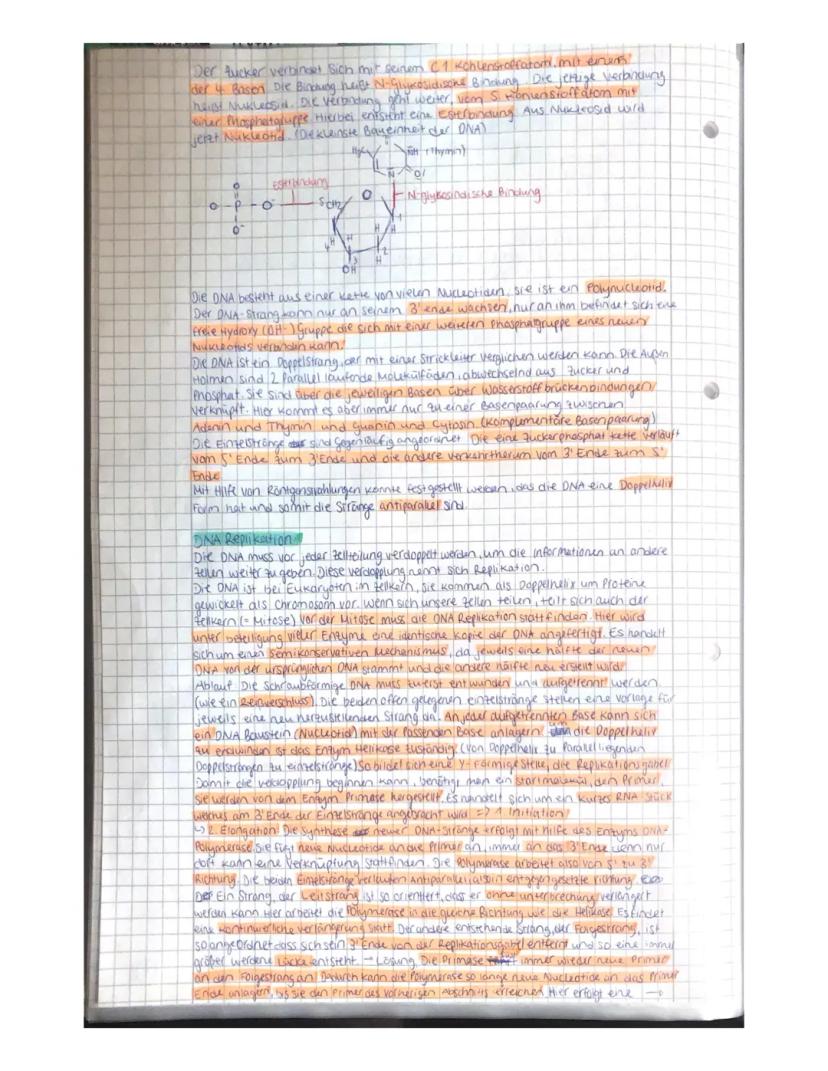 Der Zucker verbindet sich mit seinem C1 Kohlenstoffatom, mit einem
der 4 Basen. Die Bindung heißt N-Glykosidische Bindung. Die jetzige Verbindung
heißt Nukleosid. Die Verbindung geht weiter, vom 5 Kohlenstoffatom mit
einer Phosphatgruppe. Hierbei entsteht eine Esterbindung. Aus Nukleosid wird
jetzt Nukleotid. (Die kleinste Baueinheit der DNA)
H₃C NH (Thymin)
N O
Esterbindung
O - P - O 5CH₂ O N-glykosindische Bindung
O⁻
4 H H H H 1
3 2
OH H
Die DNA besteht aus einer Kette von vielen Nucleotiden, sie ist ein Polynucleotid.
Der DNA-Strang kann nur an seinem 3'ende wachsen, nur an ihm befindet sich eine
freie Hydroxy (OH-) Gruppe die sich mit einer weiteren Phosphatgruppe eines neuen
Nukleotids verbinden kann.
Die DNA ist ein Doppelstrang, der mit einer Strickleiter verglichen werden kann. Die Außen
Holmen sind 2 Parallel laufende Molekülfäden, abwechselnd aus Zucker und
Phosphat. Sie sind über die jeweiligen Basen über Wasserstoffbrückenbindungen
verknüpft. Hier kommt es aber immer nur zu einer Basenpaarung zwischen
Adenin und Thymin und Guanin und Cytosin (komplementäre Basenpaarung)
Die Einzelstränge sind gegenläufig angeordnet. Die eine Zuckerphosphat kette verläuft
vom 5' Ende zum 3'Ende und die andere verkehrtherum vom 3' Ende zum 5'
Ende
Mit Hilfe von Röntgenstrahlungen konnte festgestellt werden, das die DNA eine Doppelhelix
Form hat und somit die Stränge antiparallel sind.
DNA Replikation
Die DNA muss vor jeder Zellteilung verdoppelt werden, um die Informationen an andere
Zellen weiter zu geben. Diese verdopplung nennt sich Replikation.
Die DNA ist bei Eukaryoten im Zellkern, sie kommen als Doppelhelix um Proteine
gewickelt als Chromosom vor. Wenn sich unsere Zellen teilen, teilt sich auch der
Zellkern (= Mitose) Vor der Mitose muss die DNA Replikation stattfinden. Hier wird
unter beteiligung vieler Enzyme eine identische Kopie der DNA angefertigt. Es handelt
sich um einen Semikonservativen Mechanismus, da jeweils eine hälfte der neuen
DNA von der ursprünglichen DNA stammt und die andere hälfte neu erstellt wird
Ablauf: Die Schraubförmige DNA muss zuerst entwunden und aufgetrennt werden.
(wie ein Reißverschluss). Die beiden offen gelegenen einzelstränge stellen eine vorlage für
jeweils eine neu herzustellenden Strang da. An jeder aufgetrennten Base kann sich
ein DNA Baustein (Nucleotid) mit der Passenden Base anlagern. die Doppelhelix
zu entwinden ist das Enzym Helikase zuständig. (von Doppelhelix zu Parallel liegenden
Doppelsträngen zu einzelstränge) So bildet sich eine Y-förmige Stelle, die Replikationsgabel
Damit die verdopplung beginnen kann, benötigt man ein Startmolekül, den Primer.
Sie werden von dem Enzym Primase hergestellt. Es handelt sich um ein kurzes RNA-Stück
welches am 3'Ende der Einzelstränge angebracht wird => 1 Initiation
↳ 2. Elongation: Die Synthese neuer DNA-Stränge erfolgt mit hilfe des Enzyms DNA-
Polymerase. Sie fügt neue Nucleotide an die Primer an, immer an das 3'Ende denn nur
dort kann eine Verknüpfung stattfinden. Die Polymerase arbeitet also von 5' zu 3'
Richtung. Die beiden Einzelstränge verlaufen Antiparallel, also in entgegengesetzte richtung.
Ein Strang, der Leitstrang ist so orientiert, dass er ohne unterbrechung verlängert
werden kann. Hier arbeitet die Polymerase in die gleiche Richtung wie die Helikase. Es findet
eine kontinuierliche verlängerung statt. Der andere entstehende Strang, der Folgestrang, ist
so angeordnet dass sich sein 3'Ende von der Replikationsgabel entfernt und so eine immer
größer werdene Lücke entsteht → Lösung: Die Primase immer wieder neue Primer
an den Folgestrang an. Dadurch kann die Polymerase so lange neue Nucleotide an das Primer
Ende anlagern, bis sie den Primer des vorherigen Abschnitts erreichen. Hier erfolgt eine →